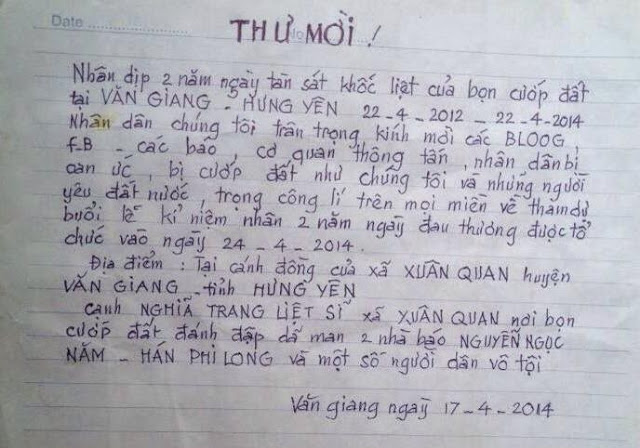 Date
THƯ MỜI !
Nhân dịp 2 năm ngày tàn sát khốc liệt của bọn cướp đất
tại VĂN GIANG - HƯNG YÊN 22-4-2012 - 22-4-2014
Nhân dân chúng tôi trân trọng kính mời các BLOOG,
F-B - các báo, cơ quan thông tấn, nhân dân bị
oan ức, bị cướp đất như chúng tôi và những người
yêu đất nước, trọng công lí trên mọi miền về tham dự
buổi lễ kỉ niệm nhân 2 năm ngày đau thương được tổ
chức vào ngày 24-4-2014.
Địa điểm : Tại cánh đồng của xã XUÂN QUAN huyện
VĂN GIANG - tỉnh HƯNG YÊN
Cạnh NGHĨA TRANG LIỆT SĨ xã XUÂN QUAN nơi bọn
cướp đất đánh đập dã man 2 nhà báo NGUYỄN NGỌC
NĂM - HÁN PHI LONG và một số người dân vô tội
Văn giang ngày 17-4-2014